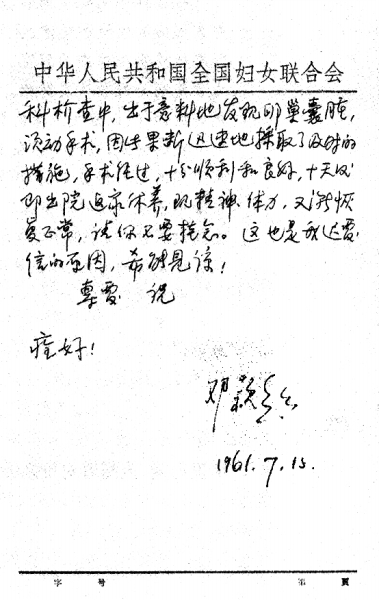 中华人民共和国全国妇女联合会
科检查中，出于意料地发现卵巢囊肿，
须动手术，因此果断迅速地採取了及时的
措施，手术经过，十分顺利和良好，十天以
即出院返家休养，现精神体力，又渐恢
复正常，请你不要挂念。这也是我迟复
信的原因，希能見谅！
专复 祝
痊好！
邓颖超
1961.7.15.
字 号 第 頁